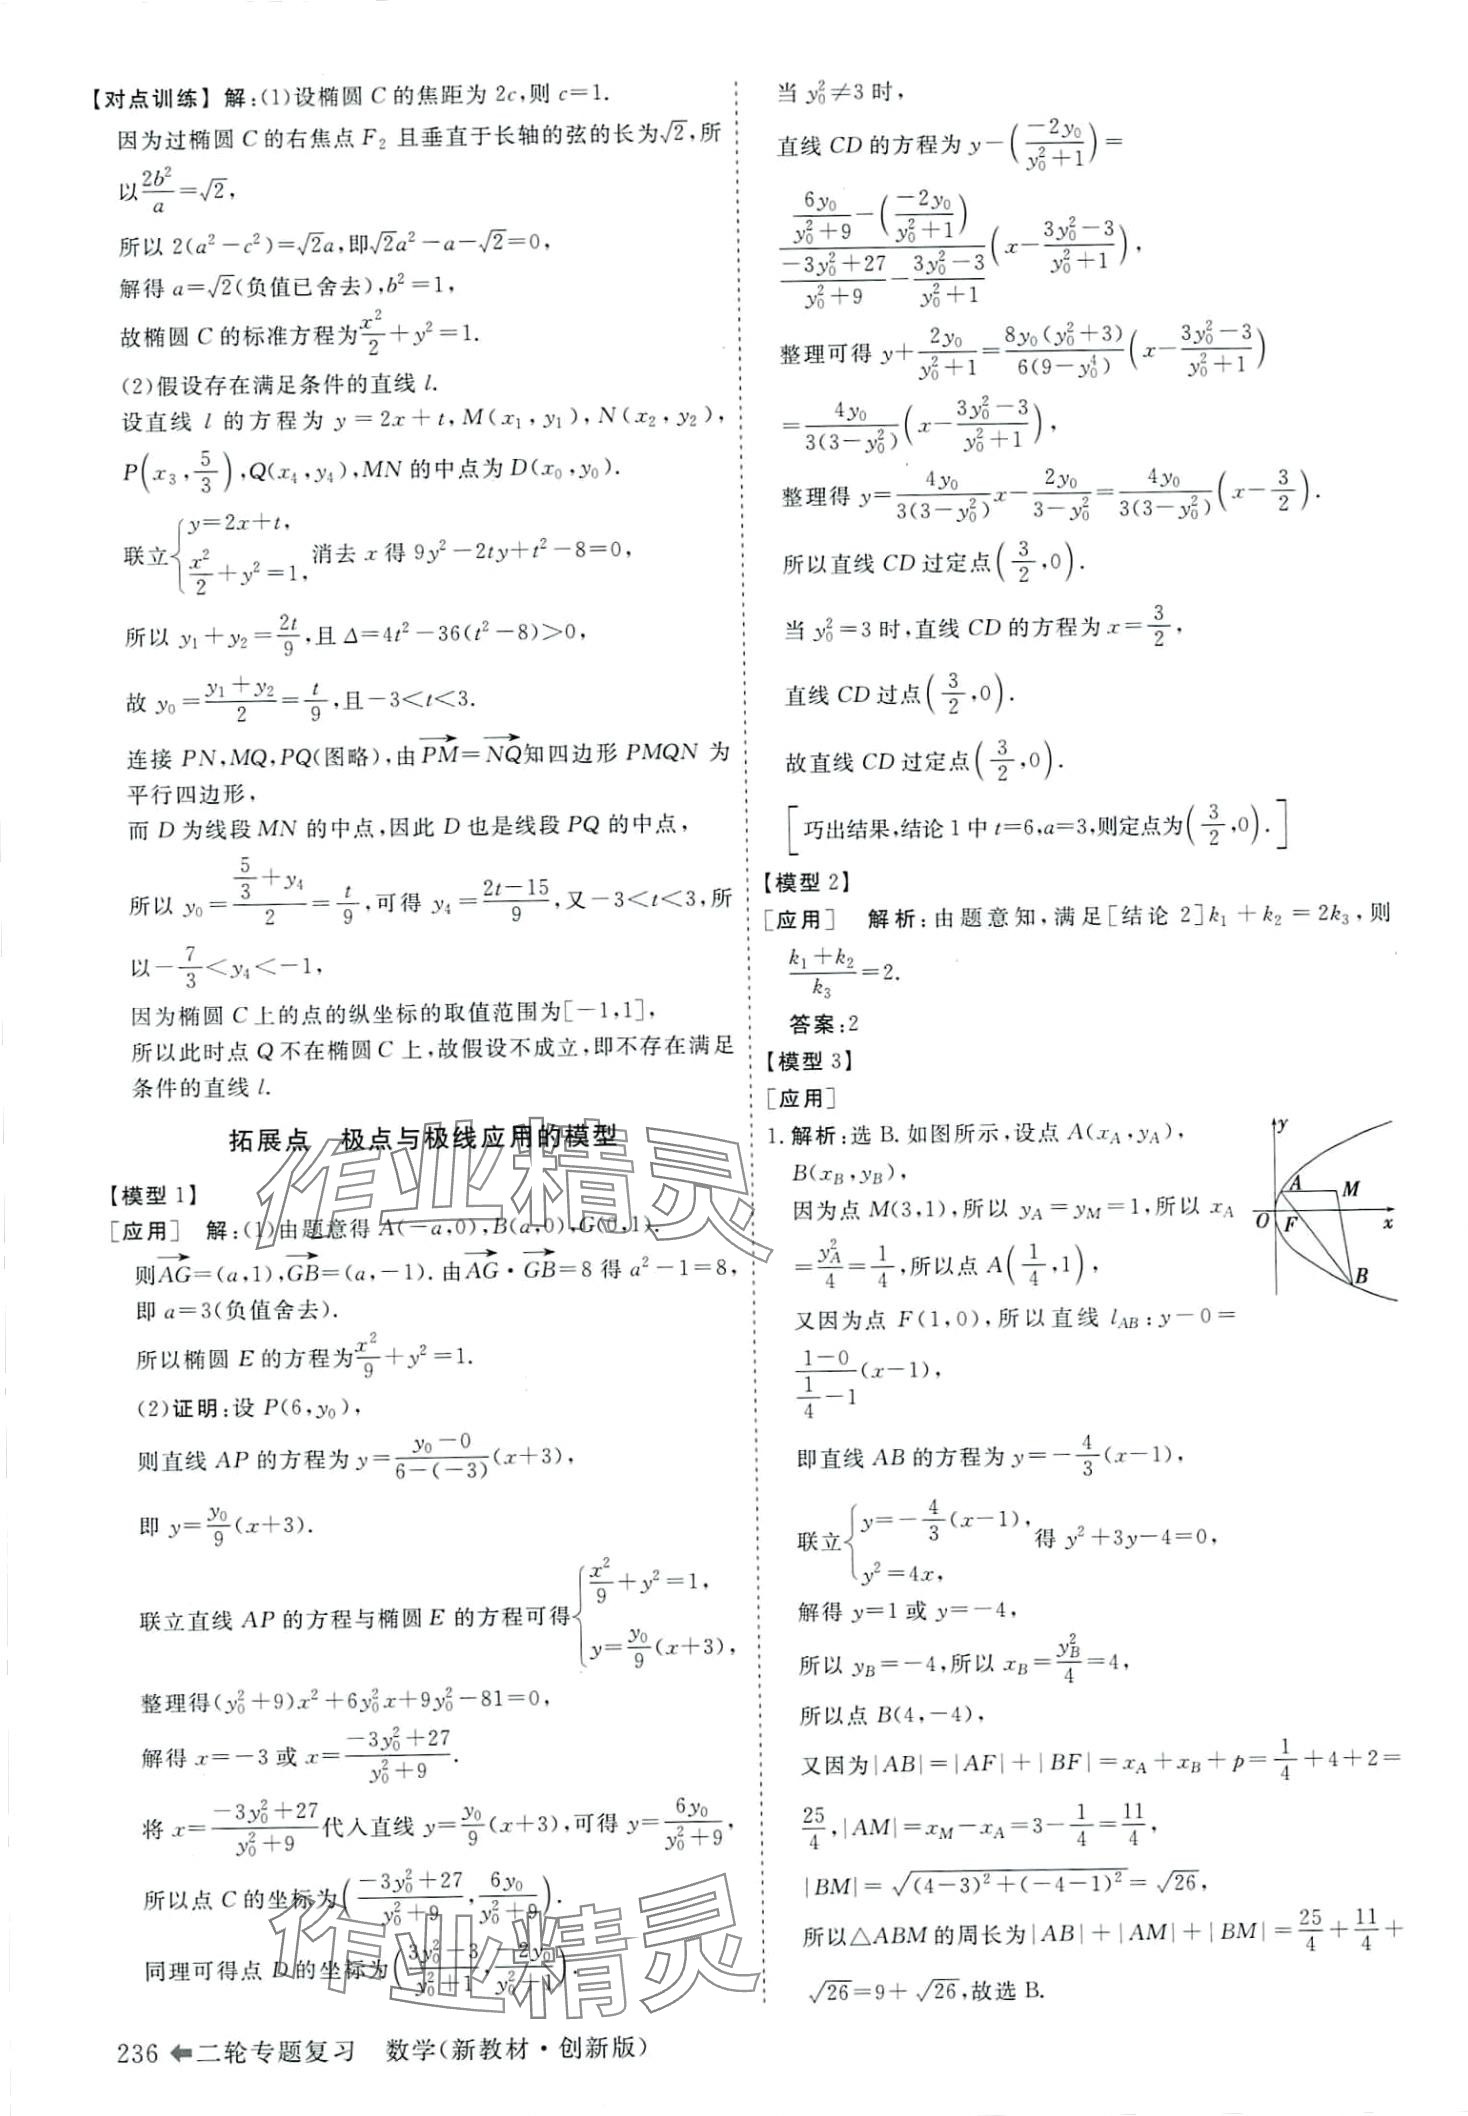 【对点训练】 解:(1)设椭圆 C 的焦距为 2c,则 c=1.
因为过椭圆 C 的右焦点 F₂ 且垂直于长轴的弦的长为√2,所
以 2b²/a=√2,
所以 2(a²-c²)=√2a,即√2a²-a-√2=0,
解得 a=√2(负值已舍去),b²=1,
故椭圆 C 的标准方程为 x²/2+y²=1.
(2)假设存在满足条件的直线 l.
设直线 l 的方程为 y=2x+t,M(x₁,y₁),N(x₂,y₂),
P(x₃,5/3),Q(x₄,y₄),MN 的中点为 D(x₀,y₀).
联立{y=2x+t, x²/2+y²=1, 消去 x 得 9y²-2ty+t²-8=0,
所以 y₁+y₂=2t/9,且 Δ=4t²-36(t²-8)>0,
故 y₀=(y₁+y₂)/2=t/9,且-3<t<3.
连接 PN,MQ,PQ(图略),由 PM→=NQ→知四边形 PMQN 为
平行四边形,
而 D 为线段 MN 的中点,因此 D 也是线段 PQ 的中点,
所以 y₀=(5/3+y₄)/2=t/9,可得 y₄=(2t-15)/9,又-3<t<3,所
以-7/3<y₄<-1,
因为椭圆 C 上的点的纵坐标的取值范围为[-1,1],
所以此时点 Q 不在椭圆 C 上,故假设不成立,即不存在满足
条件的直线 l.
拓展点 极点与极线应用的模型
【模型 1】
[应用] 解:(1)由题意得 A(-a,0),B(a,0),G(0,1).
则AG→=(a,1),GB→=(a,-1).由AG→·GB→=8 得 a²-1=8,
即 a=3(负值舍去).
所以椭圆 E 的方程为 x²/9+y²=1.
(2)证明:设 P(6,y₀),
则直线 AP 的方程为 y=(y₀-0)/(6-(-3))(x+3),
即 y=y₀/9(x+3).
联立直线 AP 的方程与椭圆 E 的方程可得{x²/9+y²=1, y=y₀/9(x+3),
整理得(y₀²+9)x²+6y₀²x+9y₀²-81=0,
解得 x=-3 或 x=(-3y₀²+27)/(y₀²+9).
将 x=(-3y₀²+27)/(y₀²+9)代入直线 y=y₀/9(x+3),可得 y=6y₀/(y₀²+9),
所以点 C 的坐标为((-3y₀²+27)/(y₀²+9),6y₀/(y₀²+9)).
同理可得点 D 的坐标为((3y₀²-3)/(y₀²+1),-2y₀/(y₀²+1)).
当 y₀²≠3 时,
直线 CD 的方程为 y-(-2y₀/(y₀²+1))=
(6y₀/(y₀²+9)-(-2y₀/(y₀²+1)))/((-3y₀²+27)/(y₀²+9)-(3y₀²-3)/(y₀²+1))(x-(3y₀²-3)/(y₀²+1)),
整理可得 y+2y₀/(y₀²+1)=8y₀(y₀²+3)/(6(9-y₀⁴))(x-(3y₀²-3)/(y₀²+1))
=4y₀/(3(3-y₀²))(x-(3y₀²-3)/(y₀²+1)),
整理得 y=4y₀/(3(3-y₀²))x-2y₀/(3-y₀²)=4y₀/(3(3-y₀²))(x-3/2).
所以直线 CD 过定点(3/2,0).
当 y₀²=3 时,直线 CD 的方程为 x=3/2,
直线 CD 过点(3/2,0).
故直线 CD 过定点(3/2,0).
[巧出结果,结论 1 中 t=6,a=3,则定点为(3/2,0).]
【模型 2】
[应用] 解析:由题意知,满足[结论 2]k₁+k₂=2k₃,则
(k₁+k₂)/k₃=2.
答案:2
【模型 3】
[应用]
1.解析:选 B.如图所示,设点 A(x_A,y_A),
B(x_B,y_B),
因为点 M(3,1),所以 y_A=y_M=1,所以 x_A
=y_A²/4=1/4,所以点 A(1/4,1),
又因为点 F(1,0),所以直线 l_AB:y-0=
(1-0)/(1/4-1)(x-1),
即直线 AB 的方程为 y=-4/3(x-1),
联立{y=-4/3(x-1), y²=4x, 得 y²+3y-4=0,
解得 y=1 或 y=-4,
所以 y_B=-4,所以 x_B=y_B²/4=4,
所以点 B(4,-4),
又因为|AB|=|AF|+|BF|=x_A+x_B+p=1/4+4+2=
25/4,|AM|=x_M-x_A=3-1/4=11/4,
|BM|=√((4-3)²+(-4-1)²)=√26,
所以△ABM 的周长为|AB|+|AM|+|BM|=25/4+11/4+
√26=9+√26,故选 B.
y
A
M
O
F
x
B
作业精灵
作业精灵
236 ⬅二轮专题复习 数学(新教材·创新版)